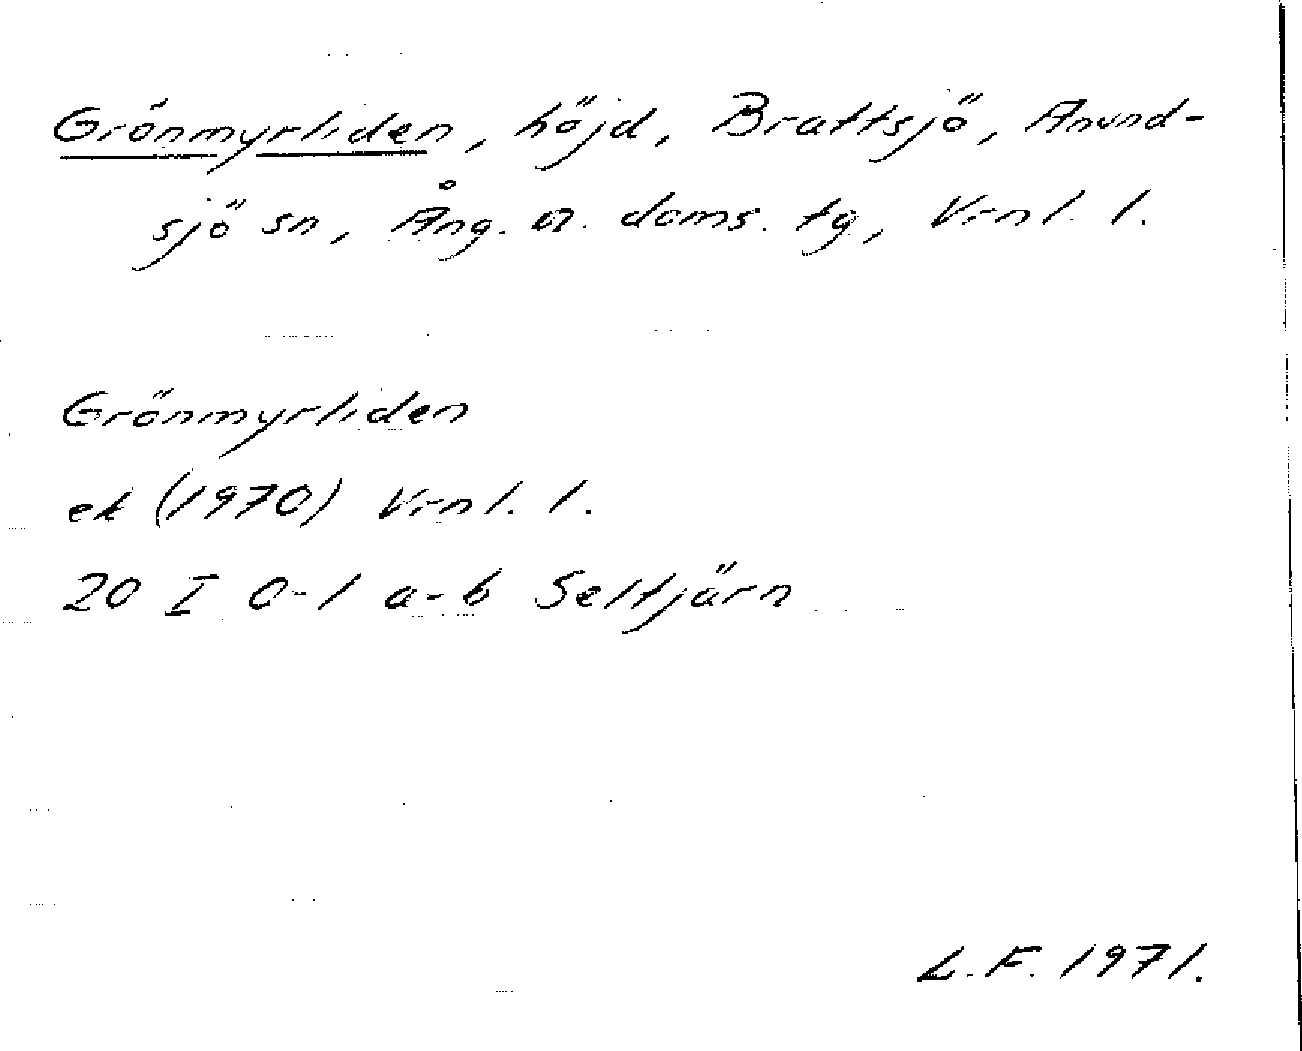 Grönmyrliden, höjd, Brattsjö, Anund-
sjö sn, Ång. n. doms. tg, Vrnl. l.
Grönmyrliden
ek (1970) Vrnl. l.
20 I 0-1 a-b Seltjärn
L.F. 1971.